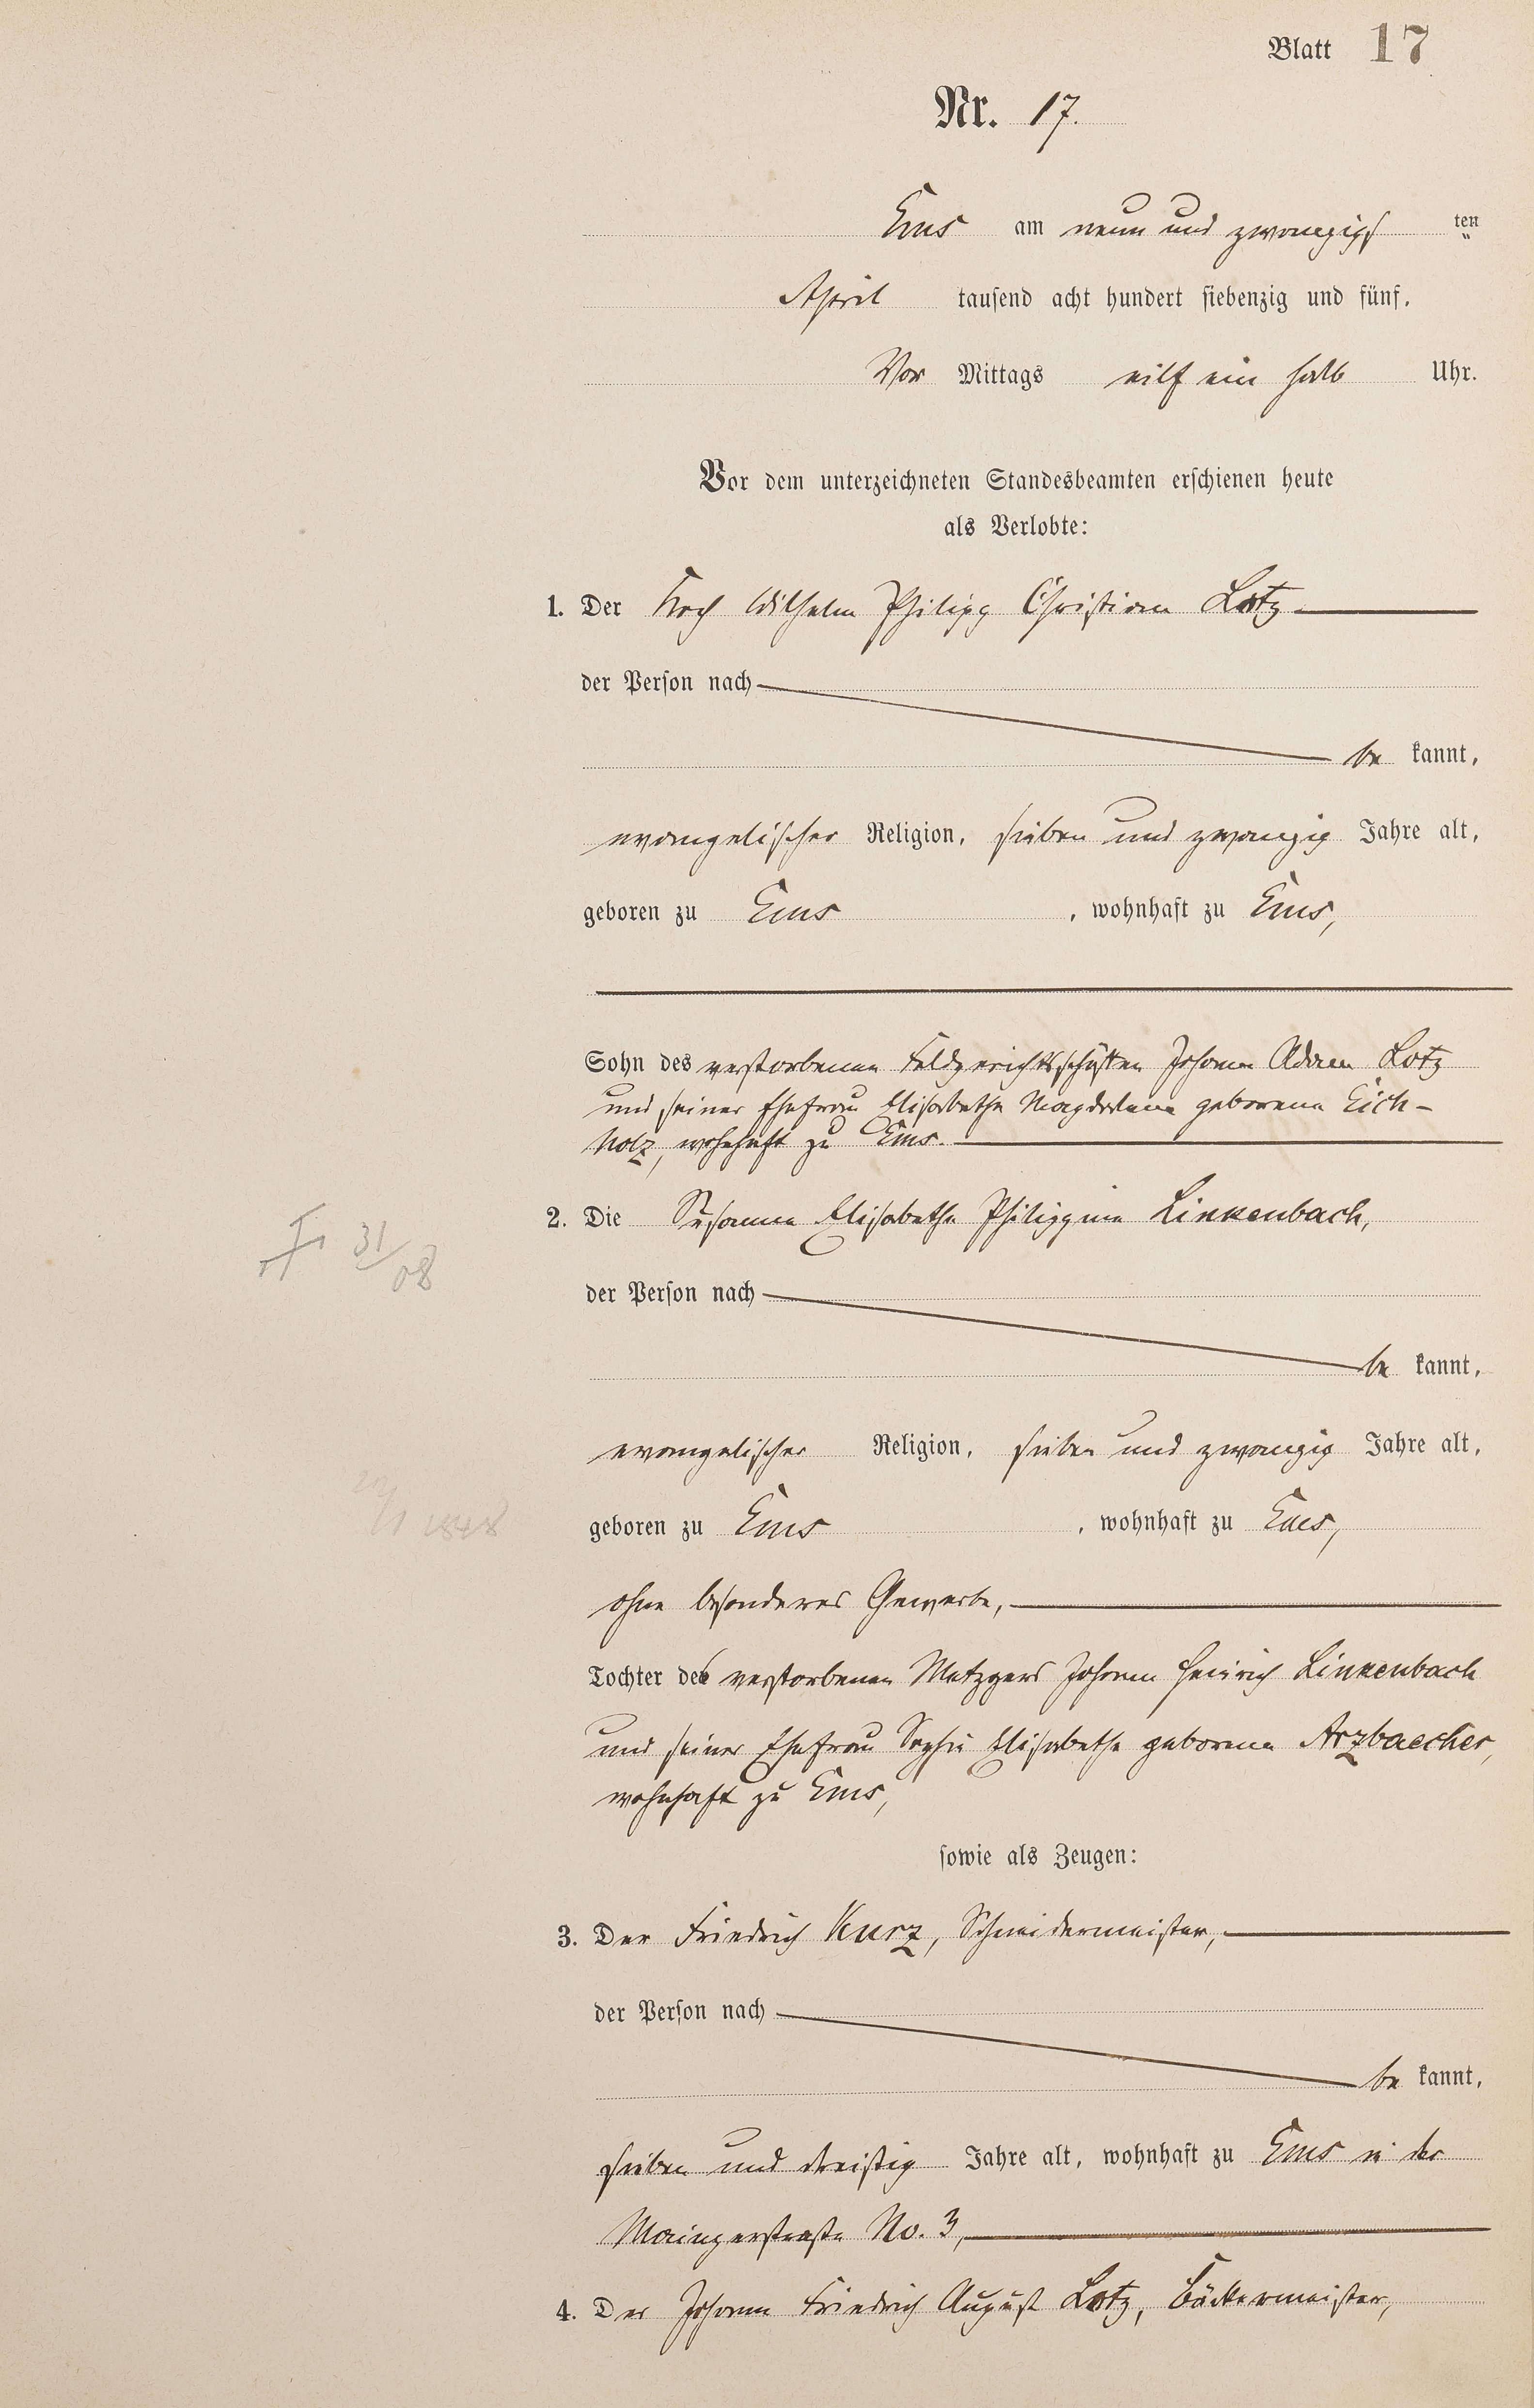 Blatt 17
Nr. 17.
Ems am neun und zwanzigs ten
April tausend acht hundert siebenzig und fünf.
Vor Mittags eilf ein halb Uhr.
Vor dem unterzeichneten Standesbeamten erschienen heute
als Verlobte:
1. Der Koch Wilhelm Philipp Christian Lotz
der Person nach
be kannt,
evangelischer Religion, sieben und zwanzig Jahre alt,
geboren zu Ems, wohnhaft zu Ems,
Sohn des verstorbenen Feldgerichtsschöffen Johann Adam Lotz
und seiner Ehefrau Elisabethe Magdalena geborene Eich-
holz, wohnhaft zu Ems.
2. Die Susanna Elisabethe Philippine Linkenbach,
der Person nach
be kannt,
evangelischer Religion, sieben und zwanzig Jahre alt,
geboren zu Ems, wohnhaft zu Ems,
ohne besonderes Gewerbe,
Tochter des verstorbenen Metzgers Johann Heinrich Linkenbach
und seiner Ehefrau Sophie Elisabethe geborene Arzbaecher,
wohnhaft zu Ems,
sowie als Zeugen:
3. Der Friedrich Kurz, Schneidermeister,
der Person nach
be kannt,
sieben und dreißig Jahre alt, wohnhaft zu Ems in der
Mainzerstraße No. 3,
4. Der Johann Friedrich August Lotz, Bäckermeister,
31/08
1848